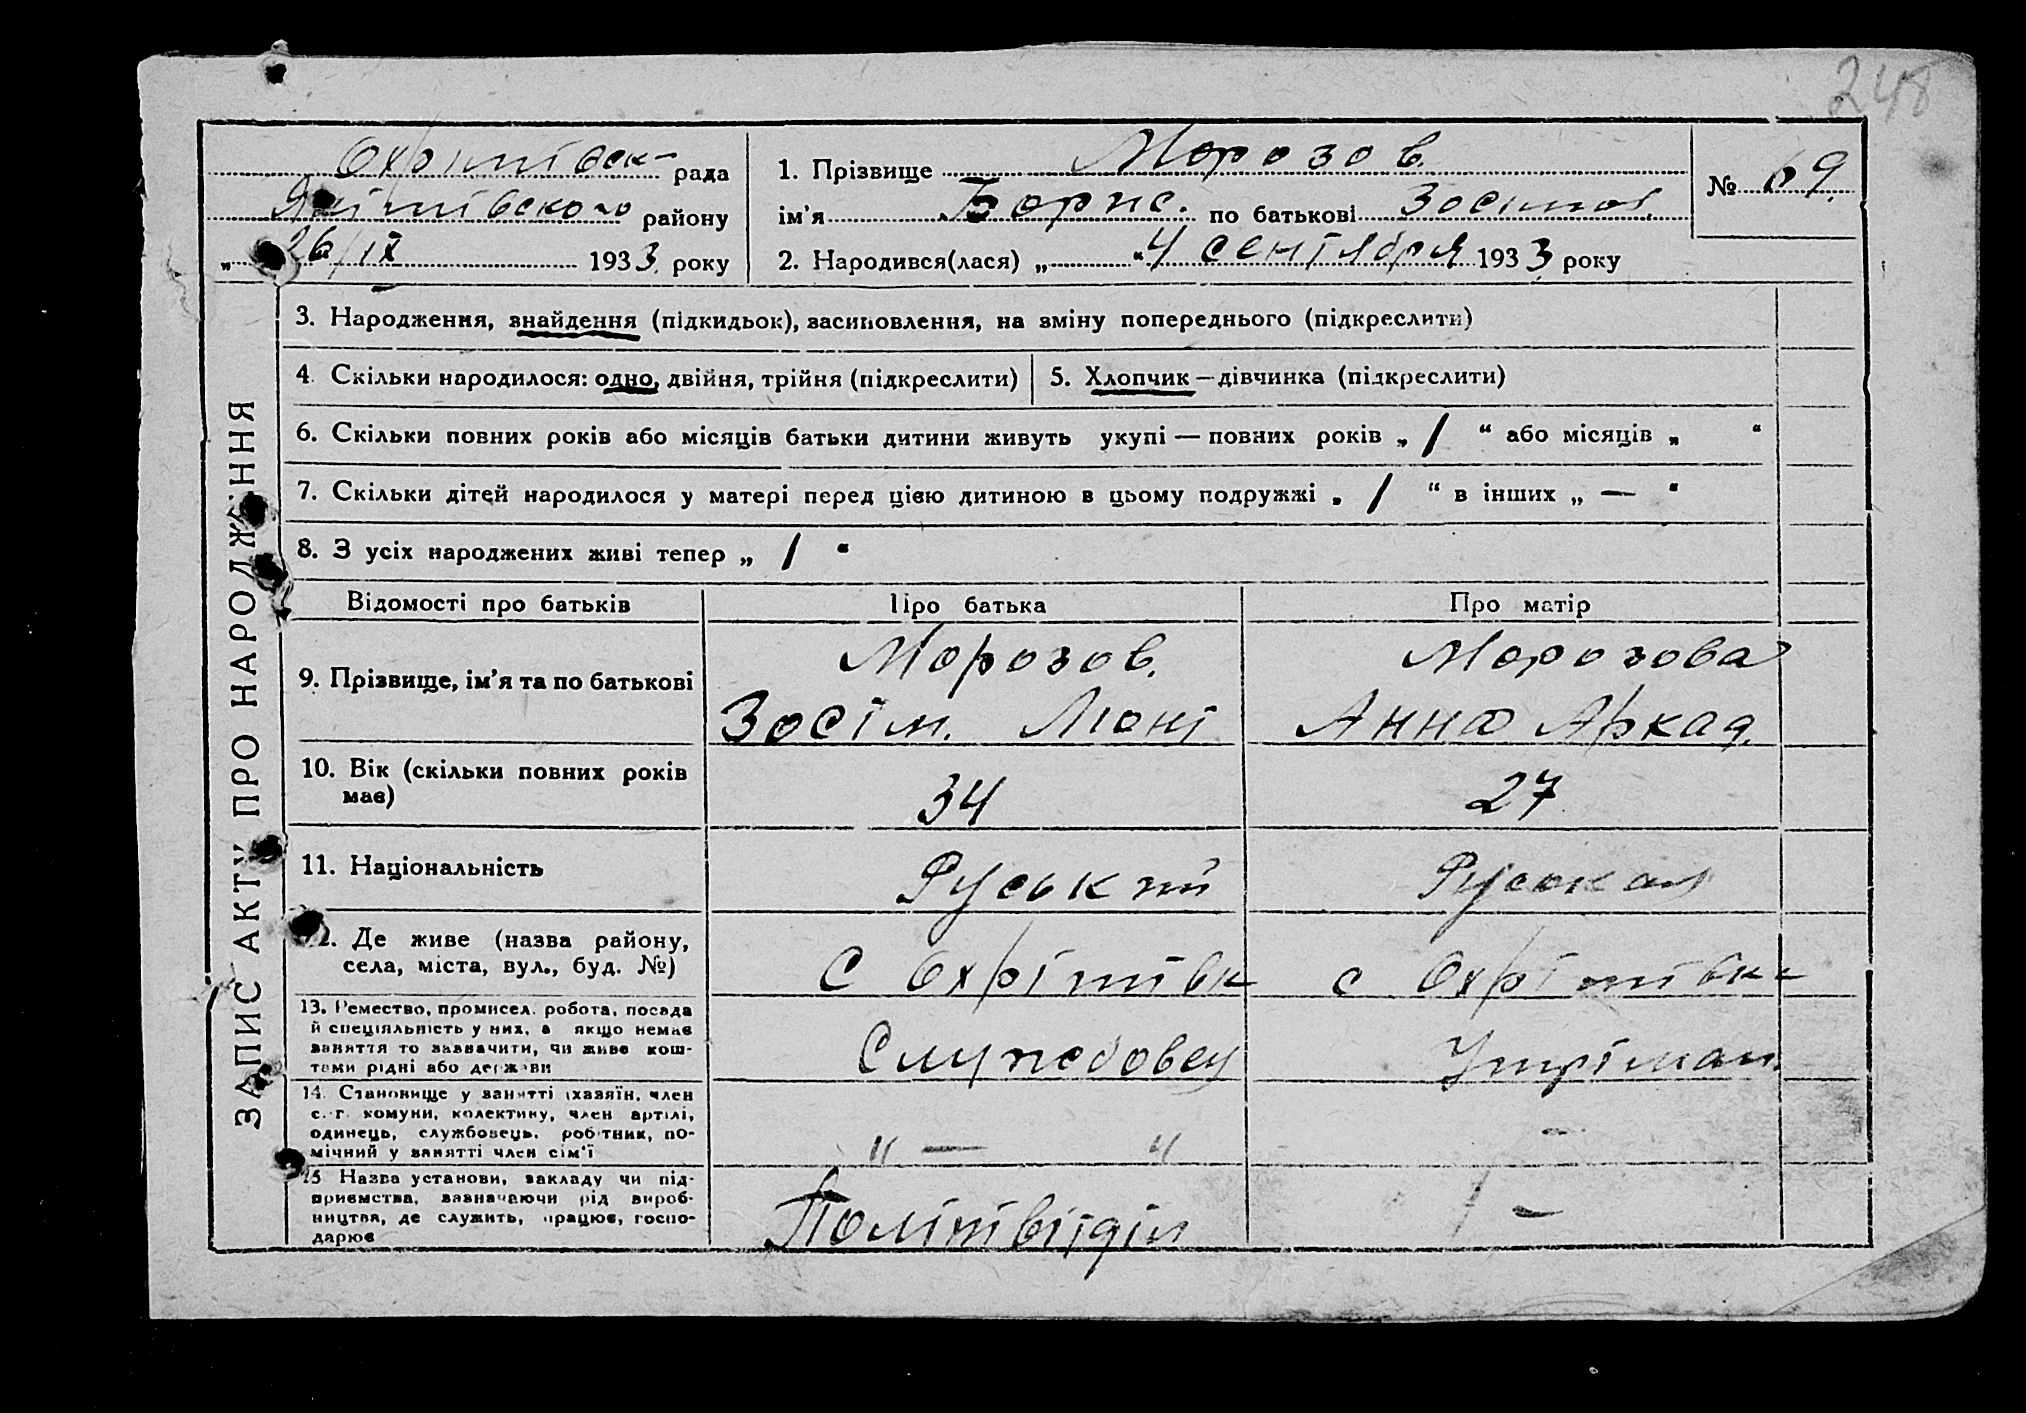 248
Охрімівськ рада
Якимівского району
„ 26/IX 1933 року
1. Прізвище Морозов
ім'я Борис. по батькові Зосімов
2. Народився(лася) „ “ 4 сентября 1933 року
№ 69
ЗАПИС АКТУ ПРО НАРОДЖЕННЯ
3. Народження, знайдення (підкидьок), засиновлення, на зміну попереднього (підкреслити)
4. Скільки народилося: одно, двійня, трійня (підкреслити)
5. Хлопчик — дівчинка (підкреслити)
6. Скільки повних років або місяців батьки дитини живуть укупі — повних років „ 1 “ або місяців „ “
7. Скільки дітей народилося у матері перед цією дитиною в цьому подружжі „ 1 “ в інших „ — “
8. З усіх народжених живі тепер „ 1 “
Відомості про батьків Про батька Про матір
9. Прізвище, ім'я та по батькові
Морозов.
Зосім. Леонт
Морозова
Анна Аркад.
10. Вік (скільки повних років
має)
34
27
11. Національність
Руський
Руская
12. Де живе (назва району,
села, міста, вул., буд. №)
с Охрімівк
с Охрімівка
13. Ремество, промисел, робота, посада
й спеціяльність у них, а якщо немає
заняття то зазначити, чи живе кош-
тами рідні або держави
Служебовец
Утріман.
14. Становище у занятті (хазяїн, член
с.-г. комуни, колективу, член артілі,
одинець, службовець, робітник, по-
мічний у занятті член сім'ї
„ — “
—
15 Назва установи, закладу чи під-
приємства, зазначаючи рід вироб-
ництва, де служить, працює, госпо-
дарює
Політвідділ
—